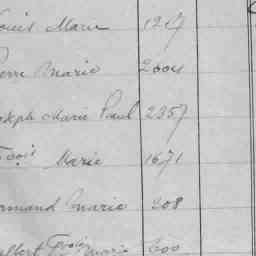 Louis Marie 1217
Pierre Marie 2004
Joseph Marie Paul 2357
Fçois Marie 1671
Armand Marie 208
Albert Marie 600